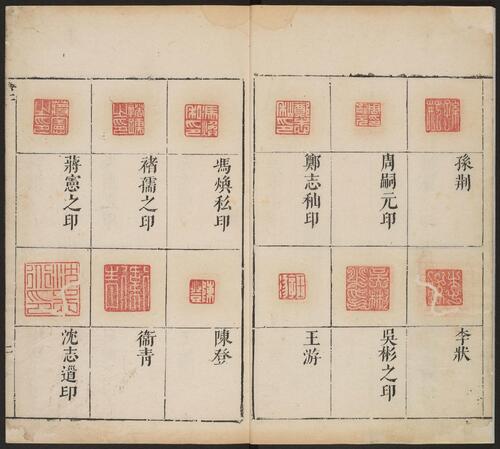 孫荆
周嗣元印
鄭志秈印
李狀
吳彬之印
王游
馮煥私印
褚孺之印
蔣憲之印
陳登
衛青
沈志道印